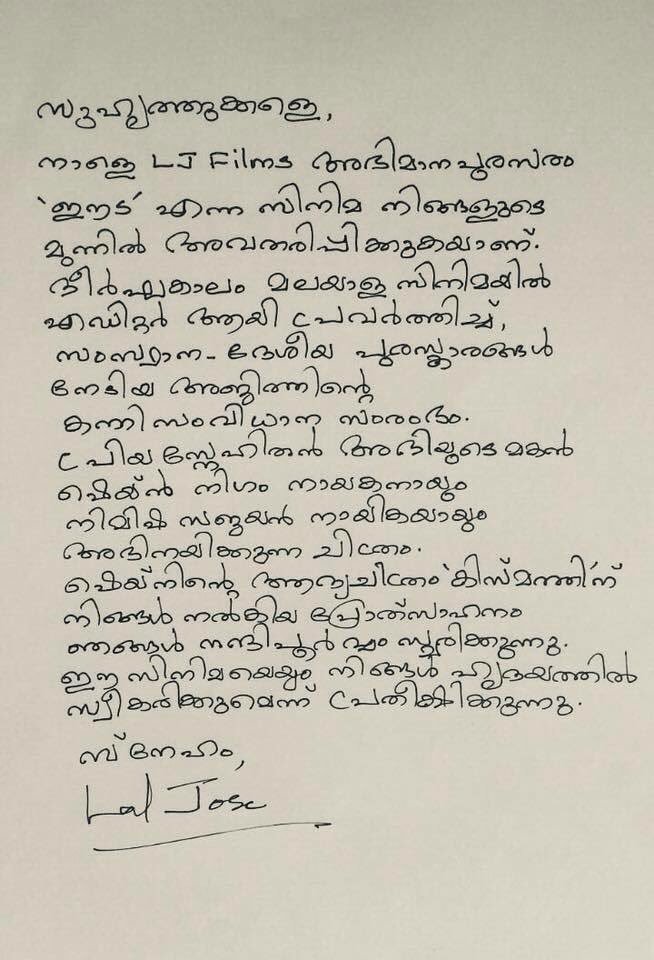 സുഹൃത്തുക്കളെ,
നാളെ LJ Films അഭിമാനപുരസരം
'ഈട' എന്ന സിനിമ നിങ്ങളുടെ
മുന്നിൽ അവതരിപ്പിക്കുകയാണ്.
ദീർഘകാലം മലയാള സിനിമയിൽ
എഡിറ്റർ ആയി പ്രവർത്തിച്ച്,
സംസ്ഥാന - ദേശീയ പുരസ്കാരങ്ങൾ
നേടിയ അജിത്തിന്റെ
കന്നി സംവിധാന സംരംഭം.
പ്രിയ സ്നേഹിതൻ അഭിയുടെ മകൻ
ഷെയ്ൻ നിഗം നായകനായും
നിമിഷ സജയൻ നായികയായും
അഭിനയിക്കുന്ന ചിത്രം.
ഷെയ്നിന്റെ ആദ്യചിത്രം 'കിസ്മത്തി'ന്
നിങ്ങൾ നൽകിയ പ്രോത്സാഹനം
ഞങ്ങൾ നന്ദിപൂർവ്വം സ്മരിക്കുന്നു.
ഈ സിനിമയെയും നിങ്ങൾ ഹൃദയത്തിൽ
സ്വീകരിക്കുമെന്ന് പ്രതീക്ഷിക്കുന്നു.
സ്നേഹം,
Lal Jose